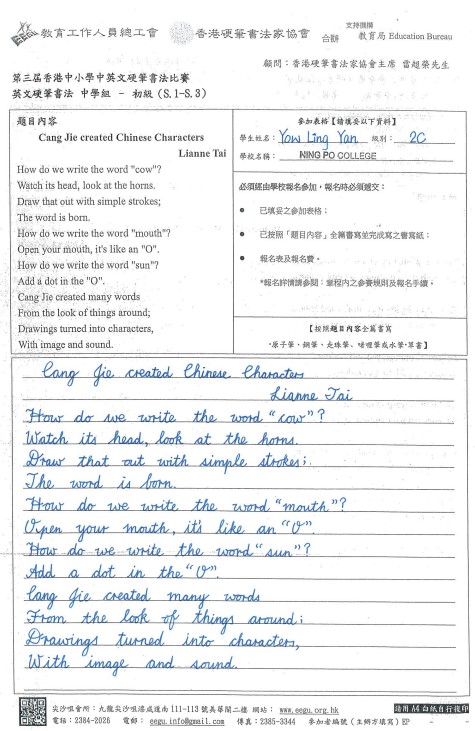 教育工作人員總工會
香港硬筆書法家協會
支持機構
合辦
教育局 Education Bureau
顧問：香港硬筆書法家協會主席 雷超榮先生
第三届香港中小學中英文硬筆書法比賽
英文硬筆書法 中學組 - 初級 (S.1-S.3)
題目內容
Cang Jie created Chinese Characters
Lianne Tai
How do we write the word "cow"?
Watch its head, look at the horns.
Draw that out with simple strokes;
The word is born.
How do we write the word "mouth"?
Open your mouth, it's like an "O".
How do we write the word "sun"?
Add a dot in the "O".
Cang Jie created many words
From the look of things around;
Drawings turned into characters,
With image and sound.
參加表格【請填妥以下資料】
學生姓名： Yow Ling Yan 級別： 2C
學校名稱： NING PO COLLEGE
必須經由學校報名參加，報名時必須遞交：
● 已填妥之參加表格；
● 已按照「題目內容」全篇書寫並完成寫之書寫紙；
● 報名表及報名費。
*報名詳情請參閱：章程內之參賽規則及報名手續。
【按照題目內容全篇書寫
·原子筆、鋼筆、走珠筆、啫喱筆或水筆·草書】
Cang Jie created Chinese Characters
Lianne Tai
How do we write the word "cow"?
Watch its head, look at the horns.
Draw that out with simple strokes;
The word is born.
How do we write the word "mouth"?
Open your mouth, it's like an "O".
How do we write the word "sun"?
Add a dot in the "O".
Cang Jie created many words
From the look of things around;
Drawings turned into characters,
With image and sound.
尖沙咀會所：九龍尖沙咀漆咸道南 111-113 號美華閣二樓 網站： www.eegu.org.hk
請用 A4 白紙自行復印
電話：2384-2026 電郵： eegu.info@gmail.com 傳真：2385-3344 參加者編號（主辦方填寫）EP